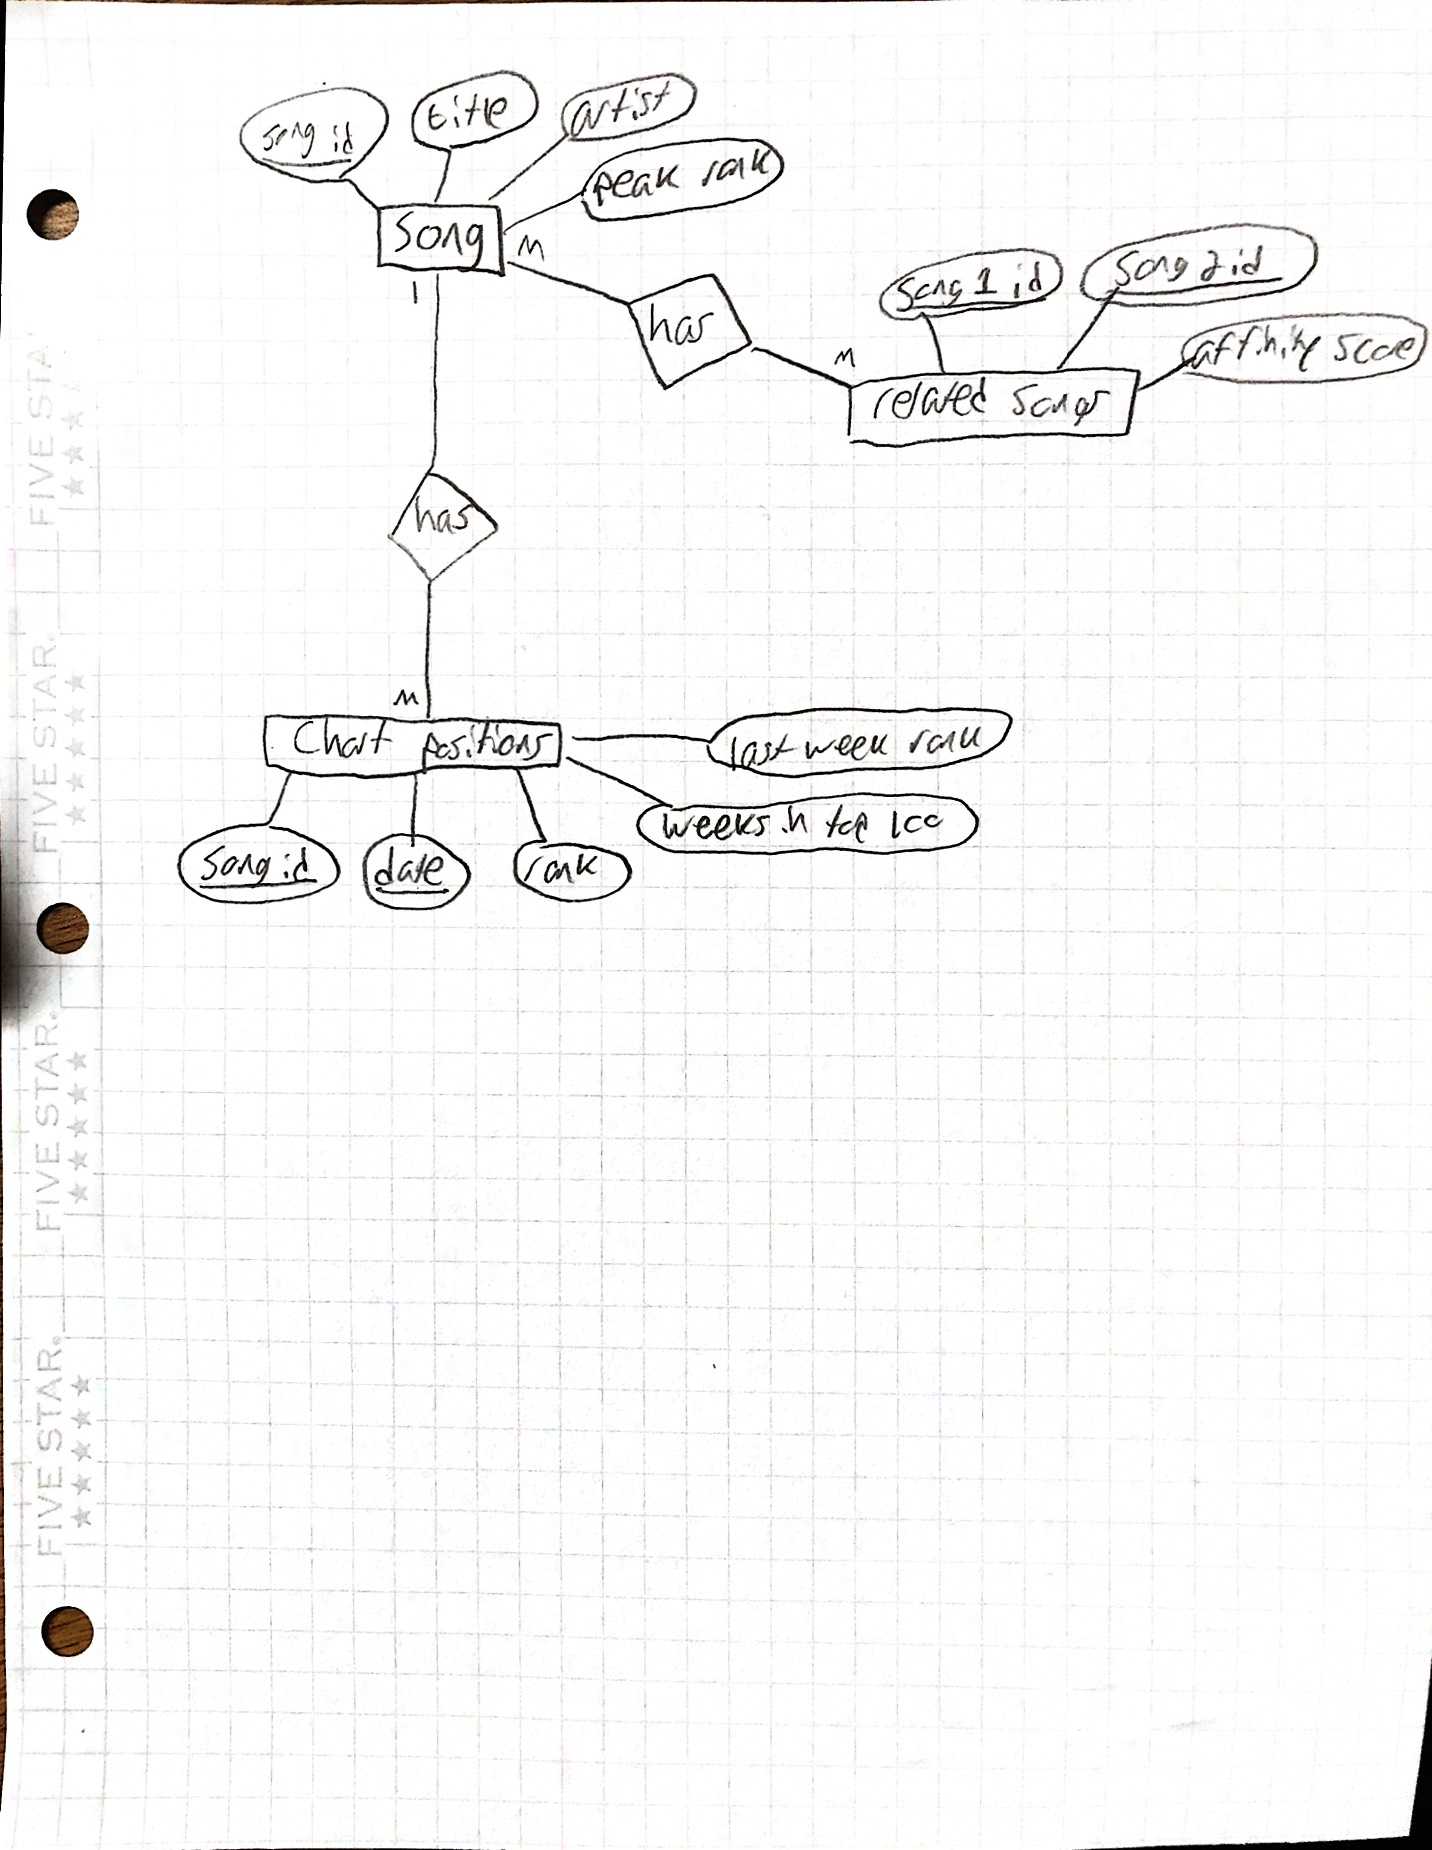 song id
title
artist
peak rank
Song
M
1
has
song 1 id
song 2 id
affinity score
M
related songs
has
M
Chart positions
last week rank
weeks in top 100
song id
date
rank
FIVE STA
FIVE STAR.
FIVE STAR.
FIVE STAR.